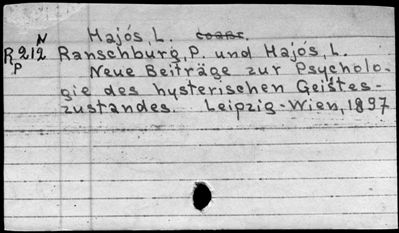 Hajós, L. coabr.
N
R 212 Ranschburg, P. und Hajós, L.
P
Neue Beiträge zur Psycholo-
gie des hysterischen Geistes-
zustandes. Leipzig-Wien, 1897